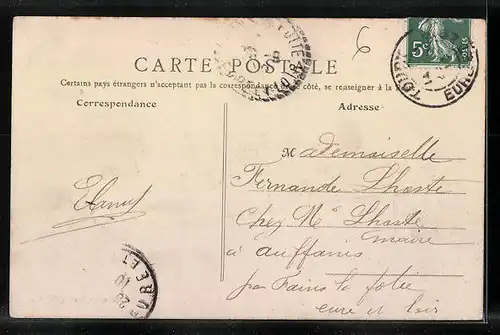 CARTE POSTALE
Certains pays étrangers n'acceptent pas la correspondance de ce côté, se renseigner à la
Correspondance
Adresse
5c
EURE
Mademoiselle
Fernande Lhoste
Chez Mr Lhoste
maire
à auffains
par Fains la folie
eure et loir